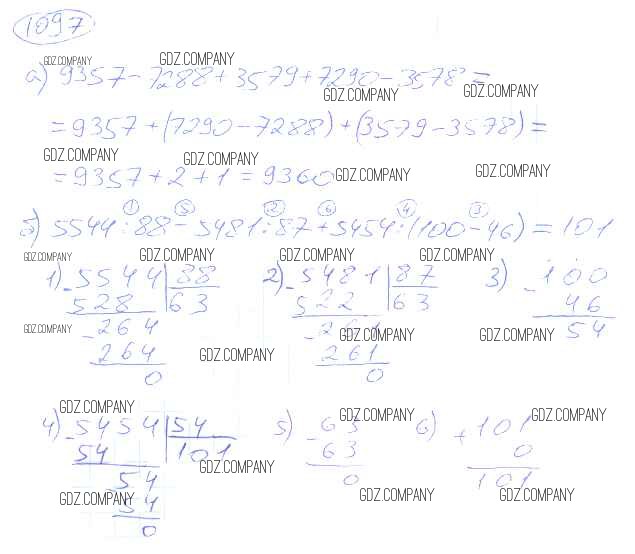 1097
GDZ.COMPANY GDZ.COMPANY
а) 9357 - 7288 + 3579 + 7290 - 3578 =
GDZ.COMPANY GDZ.COMPANY
= 9357 + (7290 - 7288) + (3579 - 3578) =
GDZ.COMPANY GDZ.COMPANY
= 9357 + 2 + 1 = 9360 GDZ.COMPANY GDZ.COMPANY
1 5 2 6 4 3
б) 5544 : 88 - 5481 : 87 + 5454 : (100 - 46) = 101
GDZ.COMPANY GDZ.COMPANY GDZ.COMPANY GDZ.COMPANY
1) - 5544 | 88 2) - 5481 | 87 3) - 100
528 | 63 522 | 63 46
GDZ.COMPANY - 264 - 261 GDZ.COMPANY 54 GDZ.COMPANY
264 GDZ.COMPANY 261 GDZ.COMPANY
0 0
GDZ.COMPANY GDZ.COMPANY GDZ.COMPANY
4) - 5454 | 54 5) - 63 6) + 101
54 | 101 63 0
GDZ.COMPANY
- 54 0 101
GDZ.COMPANY 54 GDZ.COMPANY GDZ.COMPANY
0